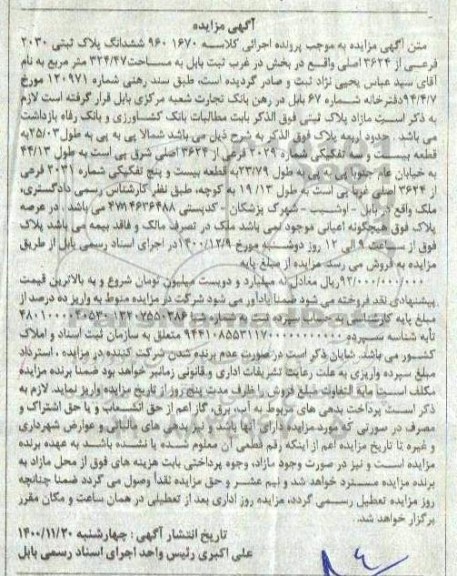 آگهی مزایده
متن آگهی مزایده به موجب پرونده اجرائی کلاسه ۱۶۷۰ ۹۶۰ ششدانگ پلاک ثبتی ۲۰۳۰
فرعی از ۳۶۲۴ اصلی واقع در بخش در غرب ثبت بابل به مساحت ۳۲۴/۴۷ متر مربع به نام
آقای سید عباس یحیی نژاد ثبت و صادر گردیده است، طبق سند رهنی شماره ۱۲۰۹۷۱ مورخ
۹۴/۴/۷ دفترخانه شماره ۶۷ بابل در رهن بانک تجارت شعبه مرکزی بابل قرار گرفته است لازم
به ذکر است مازاد پلاک ثبتی فوق الذکر بابت مطالبات بانک کشاورزی و بانک رفاه بازداشت
می باشد. حدود اربعه پلاک فوق الذکر به شرح ذیل می باشد شمالا پی به پی به طول ۲۵/۰۳ به
قطعه بیست و سه تفکیکی شماره ۲۰۲۹ فرعی از ۳۶۲۴ اصلی شرق پی است به طول ۴۴/۱۳
به خیابان عام جنوبا پی به پی به طول ۲۳/۷۹ به قطعه بیست و پنج تفکیکی شماره ۲۰۳۱ فرعی
از ۳۶۲۴ اصلی غربا پی است به طول ۱۹/۱۳ به کوچه، طبق نظر کارشناس رسمی دادگستری،
ملک واقع در بابل - اوشیب - شهرک پزشکان - کدپستی ۴۷۱۴۶۳۶۴۸۸ می باشد، در عرصه
پلاک فوق هیچگونه اعیانی موجود نمی باشد ملک در تصرف مالک و فاقد بیمه می باشد پلاک
فوق از ساعت ۹ الی ۱۲ روز دوشنبه مورخ ۱۴۰۰/۱۲/۹ در اجرای اسناد رسمی بابل از طریق
مزایده به فروش می رسد. مزایده از مبلغ پایه
ریال معادل نه میلیارد و دویست میلیون تومان شروع و به بالاترین قیمت
پیشنهادی نقد فروخته می شود ضمنا یادآور می شود شرکت در مزایده منوط به واریز ده درصد از
مبلغ پایه کارشناسی به حساب سپرده
شناسه متعلق به سازمان ثبت اسناد و املاک
کشور می باشد. شایان ذکر است در صورت عدم برنده شدن شرکت کننده در مزایده، استرداد
مبلغ سپرده واریزی به علت رعایت تشریفات اداری و قانونی زمانبر خواهد بود ضمنا برنده مزایده
مکلف است مابه التفاوت مبلغ فروش را ظرف مدت پنج روز از تاریخ مزایده واریز نماید. لازم به
ذکر است پرداخت بدهی های مربوط به آب، برق، گاز اعم از حق انشعاب و یا حق اشتراک و
مصرف در صورتی که مورد مزایده دارای آنها باشد و نیز بدهی های مالیاتی و عوارض شهرداری
و غیره تا تاریخ مزایده اعم از اینکه رقم قطعی آن معلوم شده یا نشده باشد به عهده برنده
مزایده است و نیز در صورت وجود مازاد، وجوه پرداختی بابت هزینه های فوق از محل مازاد به
برنده مزایده مسترد خواهد شد و نیم عشر و حق مزایده نقدا وصول می گردد ضمنا چنانچه
روز مزایده تعطیل رسمی گردد، مزایده روز اداری بعد از تعطیلی در همان ساعت و مکان مقرر
برگزار خواهد شد.
تاریخ انتشار آگهی: چهارشنبه ۱۴۰۰/۱۱/۲۰
علی اکبری رئیس واحد اجرای اسناد رسمی بابل